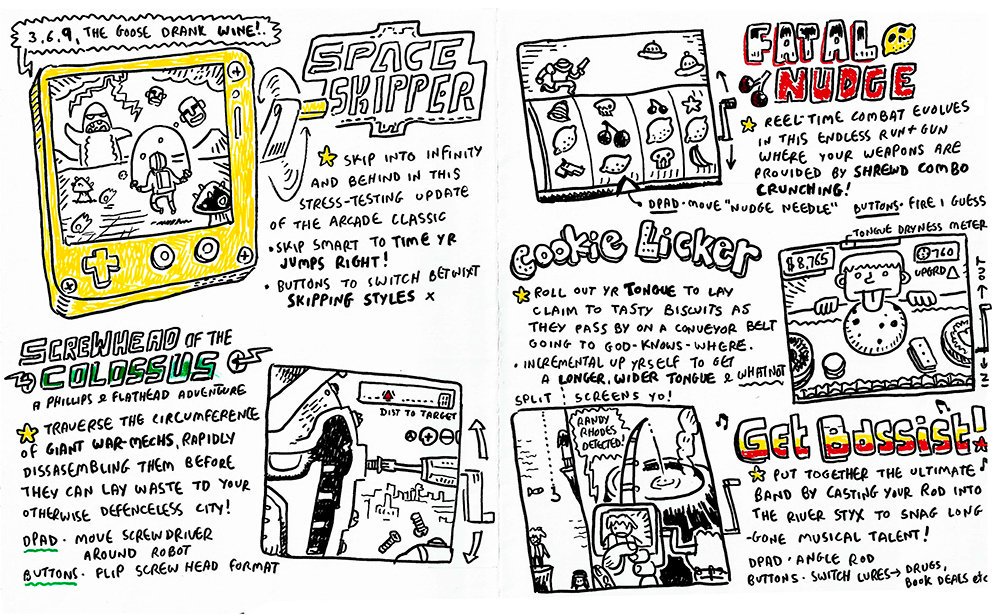 3.6.9, THE GOOSE DRANK WINE!.
SPACE
SKIPPER
SKIP INTO INFINITY
AND BEHIND IN THIS
STRESS-TESTING UPDATE
OF THE ARCADE CLASSIC
• SKIP SMART TO TIME YR
JUMPS RIGHT!
• BUTTONS TO SWITCH BETWIXT
SKIPPING STYLES X
SCREWHEAD OF THE
COLOSSUS
A PHILLIPS & FLATHEAD ADVENTURE
TRAVERSE THE CIRCUMFERENCE
OF GIANT WAR-MECHS, RAPIDLY
DISSASEMBLING THEM BEFORE
THEY CAN LAY WASTE TO YOUR
OTHERWISE DEFENCELESS CITY!
DPAD • MOVE SCREWDRIVER
AROUND ROBOT
BUTTONS • FLIP SCREW HEAD FORMAT
DIST TO TARGET
FATAL
NUDGE
REEL-TIME COMBAT EVOLVES
IN THIS ENDLESS RUN + GUN
WHERE YOUR WEAPONS ARE
PROVIDED BY SHREWD COMBO
CRUNCHING!
DPAD • MOVE "NUDGE NEEDLE" BUTTONS • FIRE I GUESS
COOKIE LICKER
ROLL OUT YR TONGUE TO LAY
CLAIM TO TASTY BISCUITS AS
THEY PASS BY ON A CONVEYOR BELT
GOING TO GOD-KNOWS-WHERE.
• INCREMENTAL UP YRSELF TO GET
A LONGER, WIDER TONGUE & WHATNOT
TONGUE DRYNESS METER
$8,765
760
UPGRD
OUT
IN
SPLIT SCREENS YO!
RANDY
RHODES
DETECTED!
GET BASSIST!
PUT TOGETHER THE ULTIMATE
BAND BY CASTING YOUR ROD INTO
THE RIVER STYX TO SNAG LONG
-GONE MUSICAL TALENT!
DPAD • ANGLE ROD
BUTTONS • SWITCH LURES → DRUGS,
BOOK DEALS etc